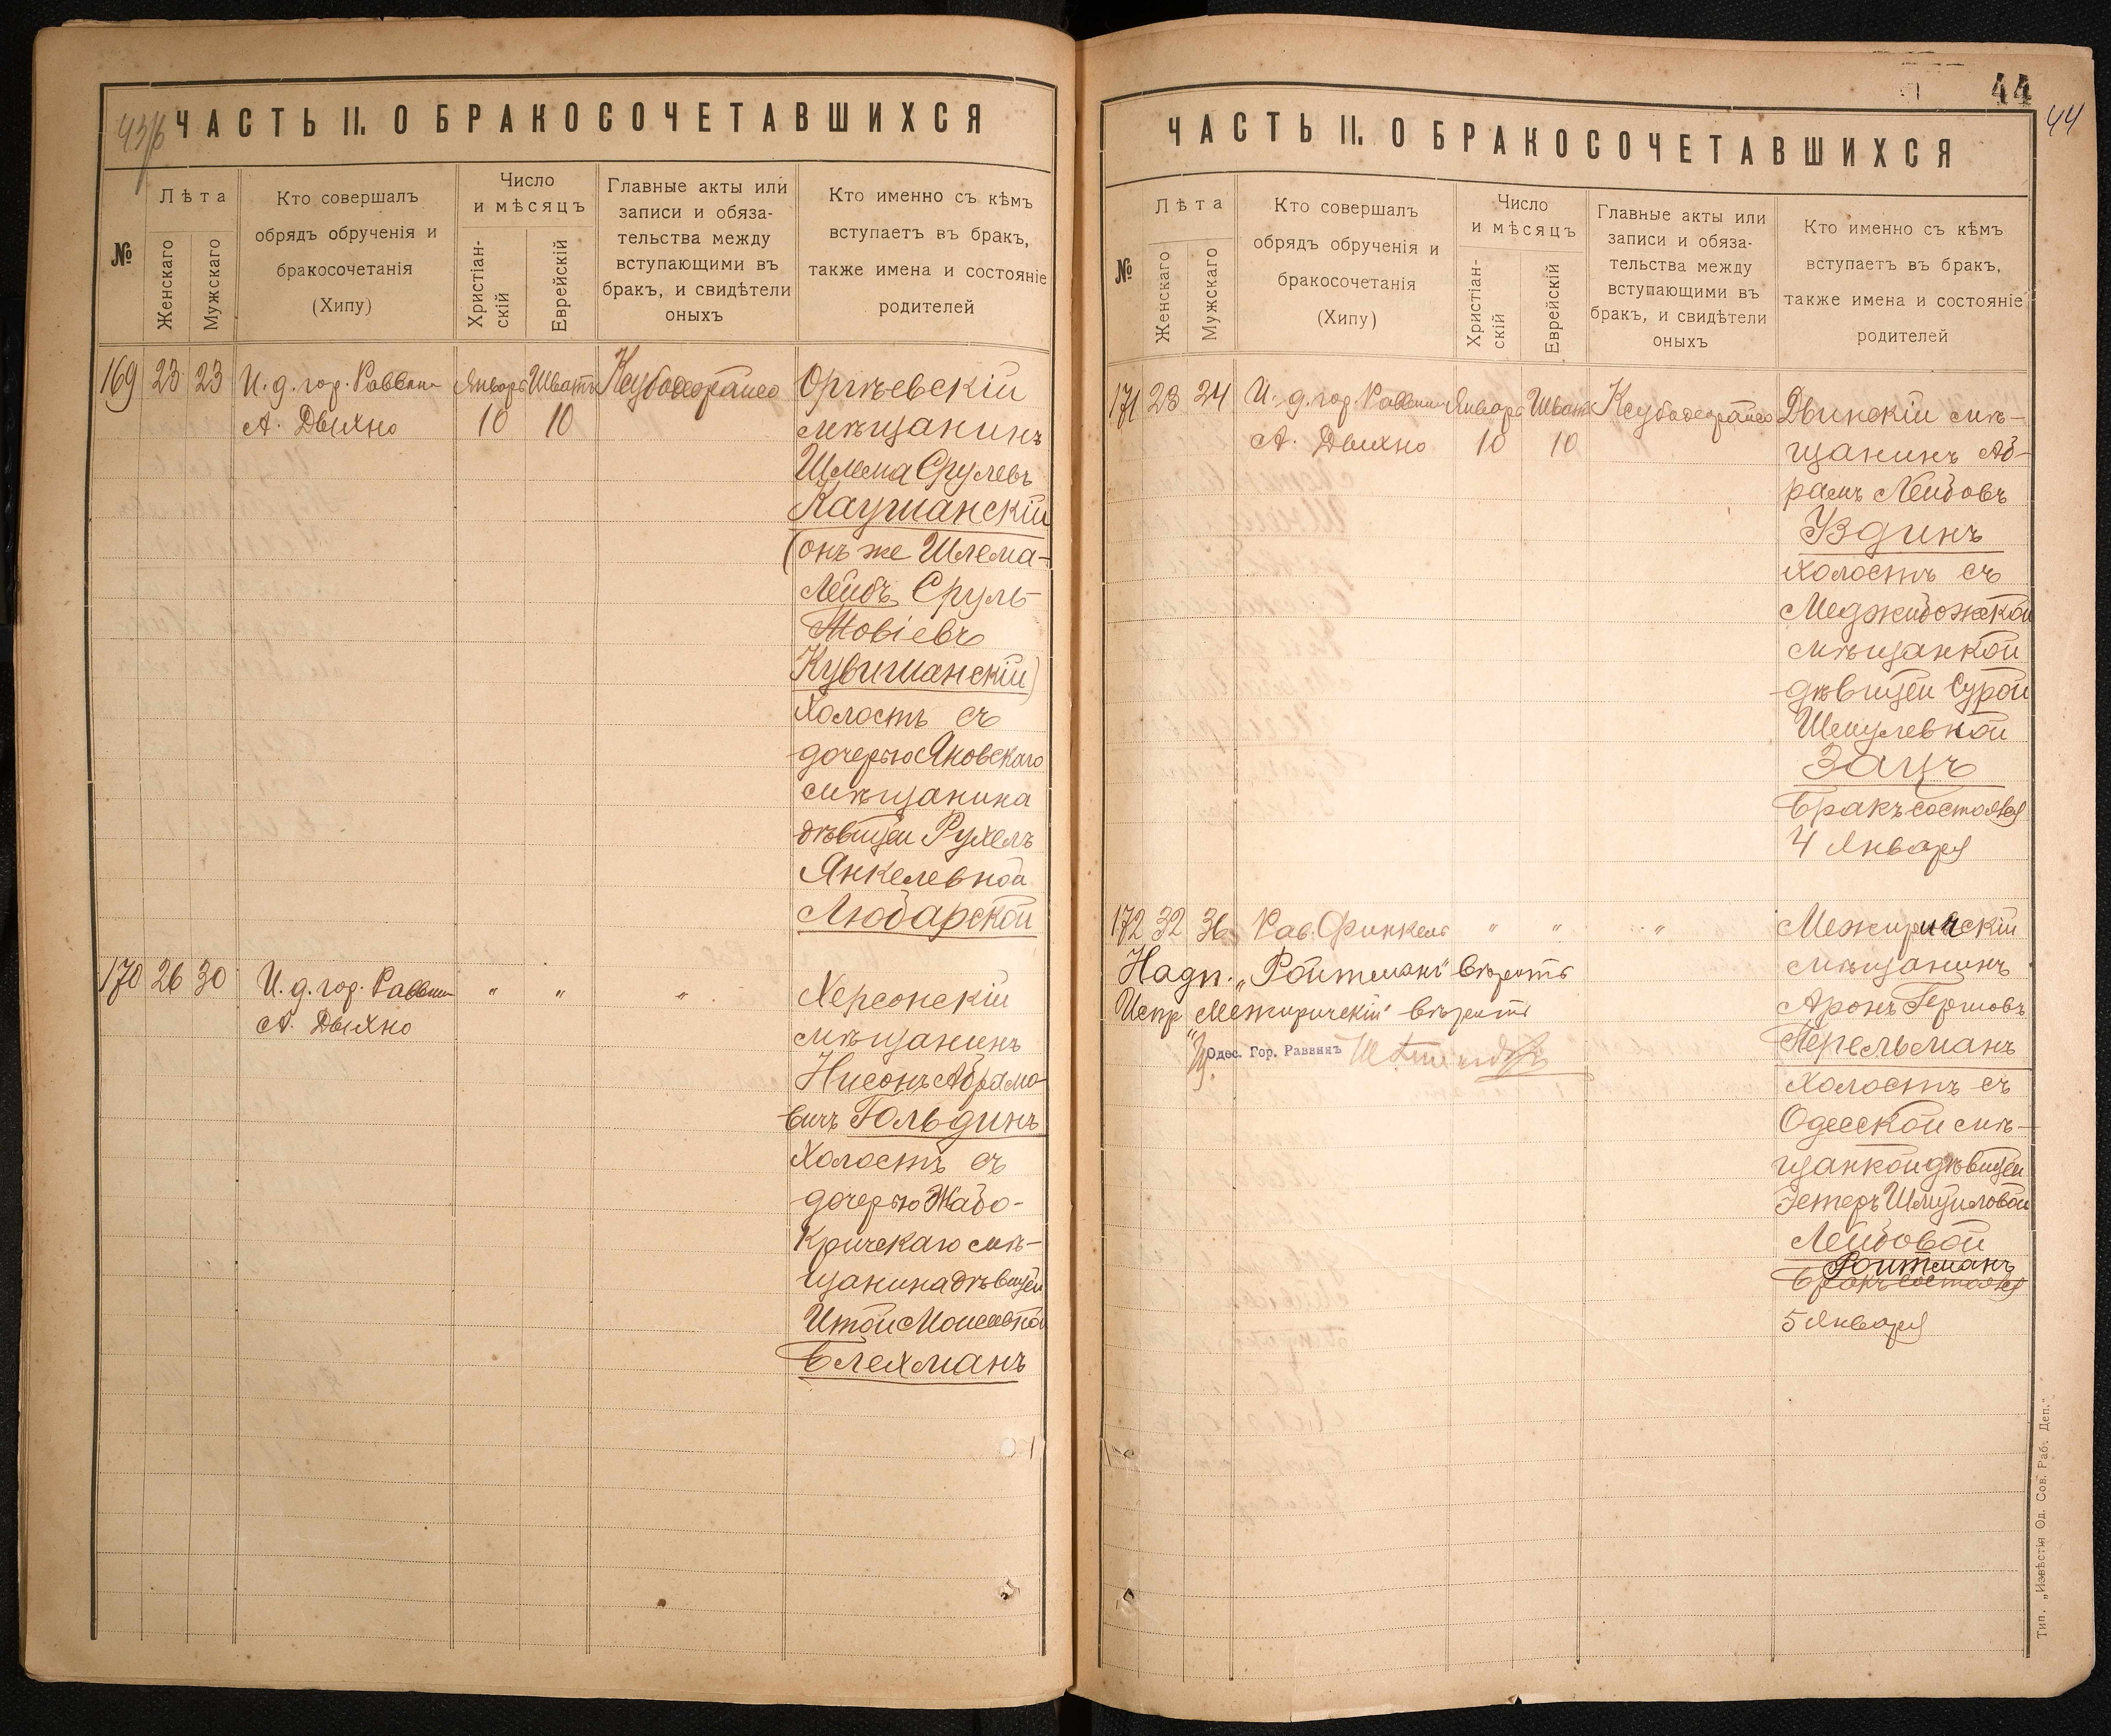 43/б
ЧАСТЬ II. О БРАКОСОЧЕТАВШИХСЯ
№
Лѣта
Женскаго
Мужскаго
Кто совершалъ
обрядъ обрученія и
бракосочетанія
(Хипу)
Число
и мѣсяцъ
Христіан-
скій
Еврейскій
Главные акты или
записи и обяза-
тельства между
вступающими въ
бракъ, и свидѣтели
оныхъ
Кто именно съ кѣмъ
вступаетъ въ бракъ,
также имена и состояніе
родителей
169 23 23 И. д. гор. Раввина Января Шватъ Оргѣевскій
А. Дыхно 10 10 мѣщанинъ
Шлема Срулевъ
Каушанскій
(онъ же Шлема-
Лейбъ Сруль-
Товіевъ
Кувишанскій)
холостъ съ
дочерью Яновскаго
мѣщанина
дѣвицей Рухель
Янкелевной
Любарской
170 26 30 И. д. гор. Раввина " " " Херсонскій
А. Дыхно мѣщанинъ
Нисонъ Абрамо-
вичъ Гольдинъ
холостъ съ
дочерью Жабо-
кричскаго мѣ-
щанина дѣвицей
Итой Моисеевной
Блехманъ
44
44
ЧАСТЬ II. О БРАКОСОЧЕТАВШИХСЯ
№
Лѣта
Женскаго
Мужскаго
Кто совершалъ
обрядъ обрученія и
бракосочетанія
(Хипу)
Число
и мѣсяцъ
Христіан-
скій
Еврейскій
Главные акты или
записи и обяза-
тельства между
вступающими въ
бракъ, и свидѣтели
оныхъ
Кто именно съ кѣмъ
вступаетъ въ бракъ,
также имена и состояніе
родителей
171 23 24 И. д. гор. Раввина Января Шватъ Двинскій мѣ-
А. Дыхно 10 10 щанинъ Аб-
рамъ Лейбовъ
Уздинъ
холостъ съ
Меджибожской
мѣщанкой
дѣвицей Сурой
Шмулевной
Зацъ
Бракъ состоялся
4 Января
172 32 36 Рав. Финкель " " " Межиричскій
мѣщанинъ
Аронъ Гершовъ
Перельманъ
холостъ съ
Одесской мѣ-
щанкой дѣвицей
Эстеръ Шмуиловой
Лейбовой
Ройтманъ
Бракъ состоялся
5 Января
Надп. „Ройтманъ" вѣрить
Испр. „Межиричскій" вѣрить
Одес. Гор. Раввинъ
Тип. „Извѣстія Од. Сов. Раб. Деп."